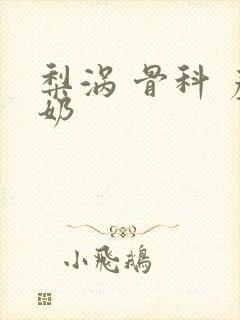 梨涡 骨科
奶
小飛鵝